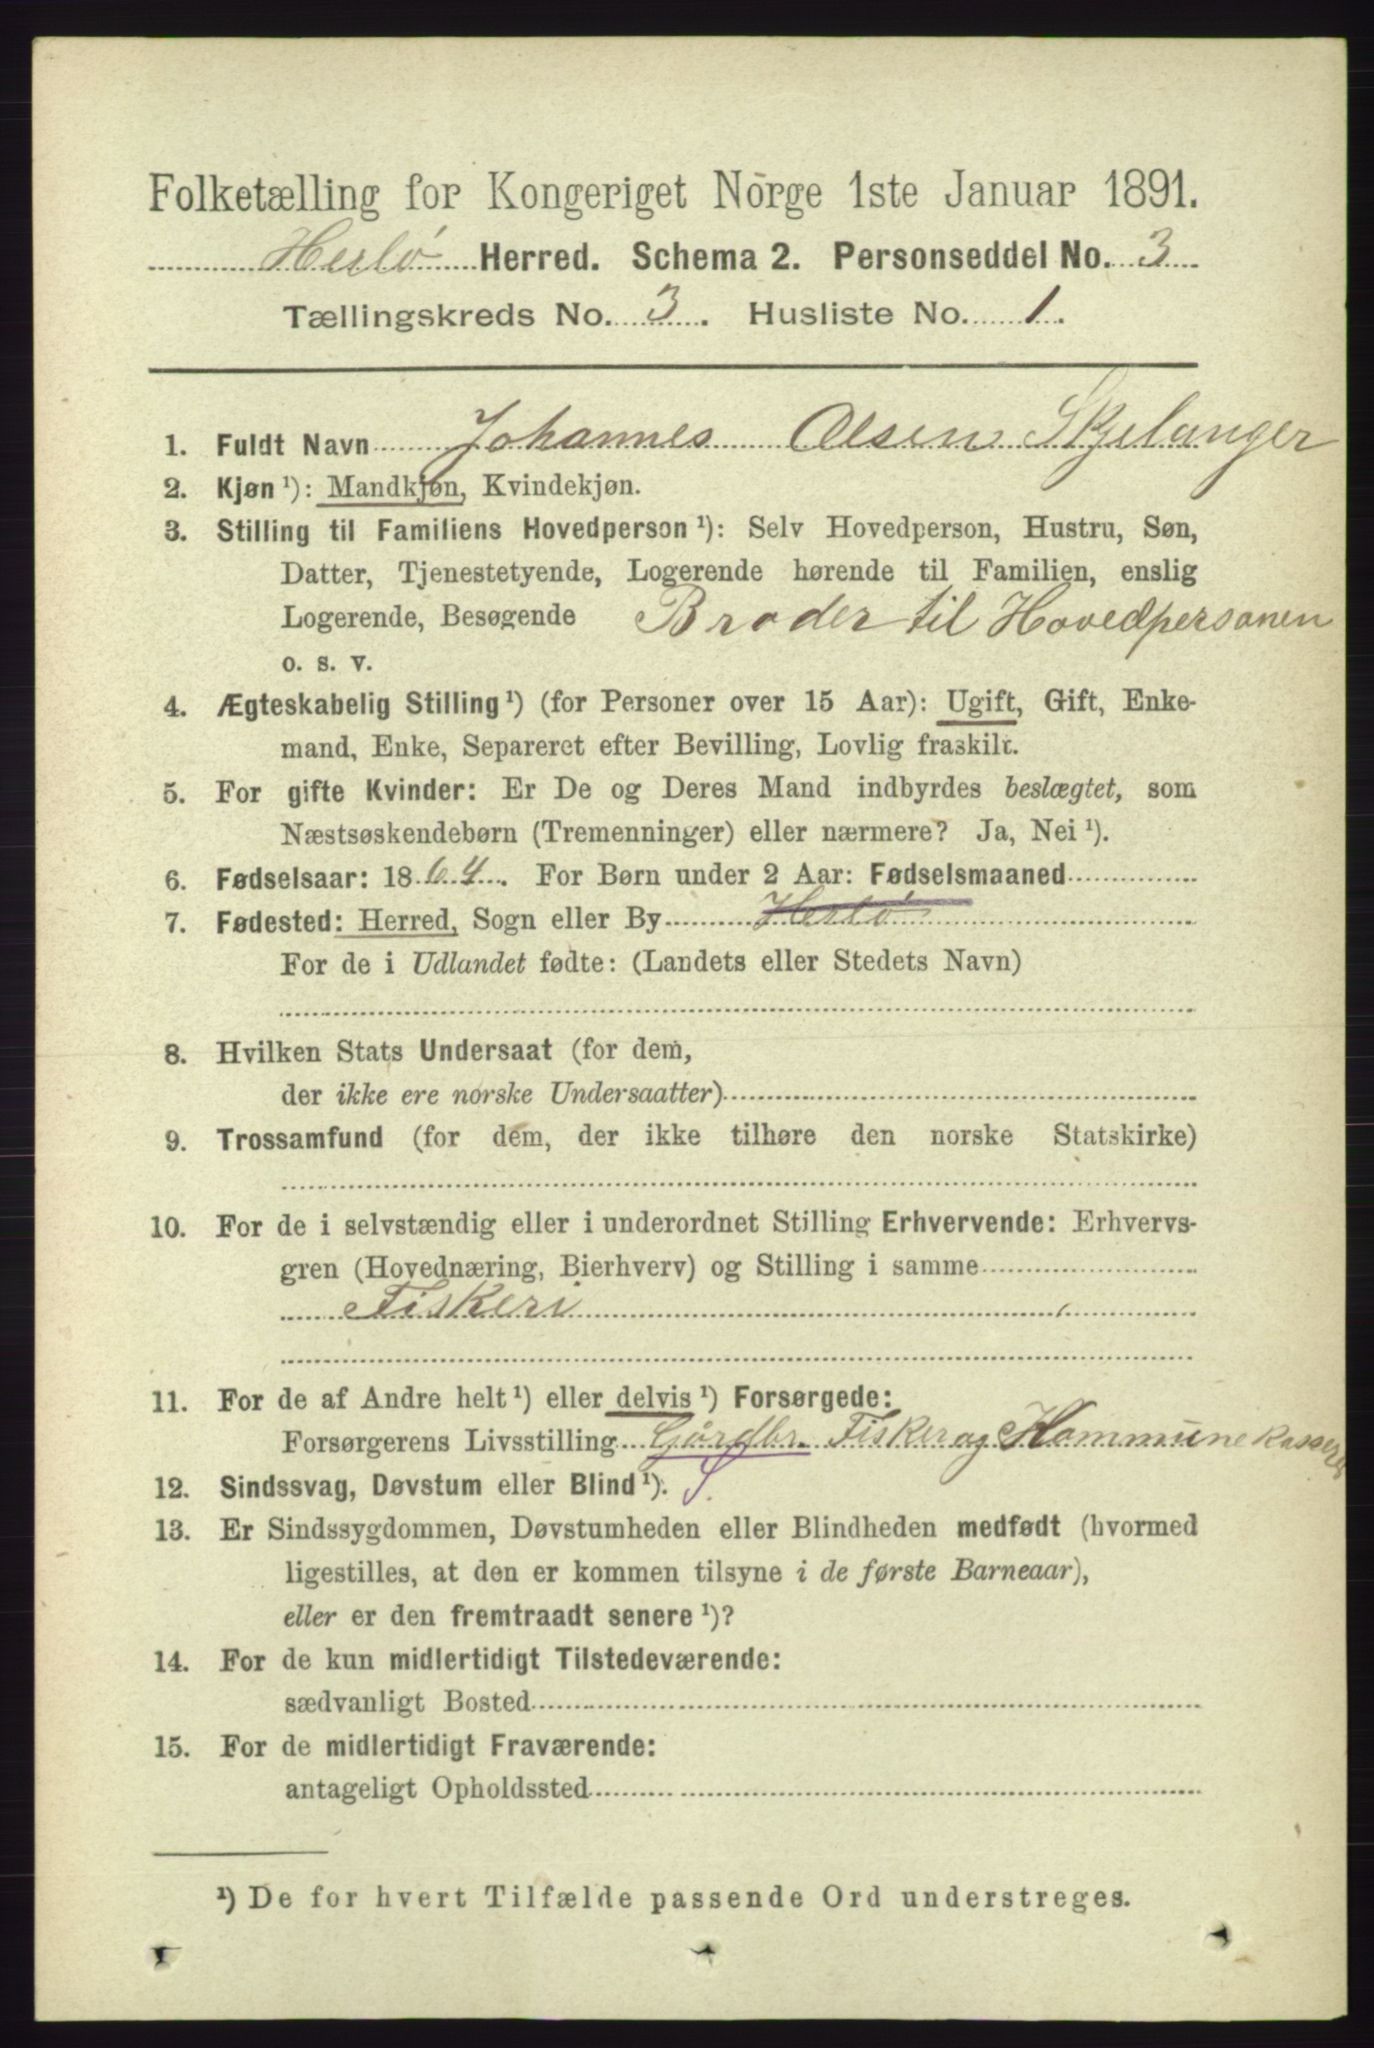 Folketælling for Kongeriget Norge 1ste Januar 1891.
Herlö Herred. Schema 2. Personseddel No. 3
Tællingskreds No. 3. Husliste No. 1.
1. Fuldt Navn Johannes Olsen Skjelanger
2. Kjøn ¹): Mandkjøn, Kvindekjøn.
3. Stilling til Familiens Hovedperson ¹): Selv Hovedperson, Hustru, Søn,
Datter, Tjenestetyende, Logerende hørende til Familien, enslig
Logerende, Besøgende Broder til Hovedpersonen
o. s. v.
4. Ægteskabelig Stilling ¹) (for Personer over 15 Aar): Ugift, Gift, Enke-
mand, Enke, Separeret efter Bevilling, Lovlig fraskilt.
5. For gifte Kvinder: Er De og Deres Mand indbyrdes beslægtet, som
Næstsøskendebørn (Tremenninger) eller nærmere? Ja, Nei ¹).
6. Fødselsaar: 1864. For Børn under 2 Aar: Fødselsmaaned
7. Fødested: Herred, Sogn eller By Herlö
For de i Udlandet fødte: (Landets eller Stedets Navn)
8. Hvilken Stats Undersaat (for dem,
der ikke ere norske Undersaatter)
9. Trossamfund (for dem, der ikke tilhøre den norske Statskirke)
10. For de i selvstændig eller i underordnet Stilling Erhvervende: Erhvervs-
gren (Hovednæring, Bierhverv) og Stilling i samme
Fiskeri
11. For de af Andre helt ¹) eller delvis ¹) Forsørgede:
Forsørgerens Livsstilling Gårdbr. Fisker og Kommunekasserer
12. Sindssvag, Døvstum eller Blind ¹). S.
13. Er Sindssygdommen, Døvstumheden eller Blindheden medfødt (hvormed
ligestilles, at den er kommen tilsyne i de første Barneaar),
eller er den fremtraadt senere ¹)?
14. For de kun midlertidigt Tilstedeværende:
sædvanligt Bosted
15. For de midlertidigt Fraværende:
antageligt Opholdssted
¹) De for hvert Tilfælde passende Ord understreges.